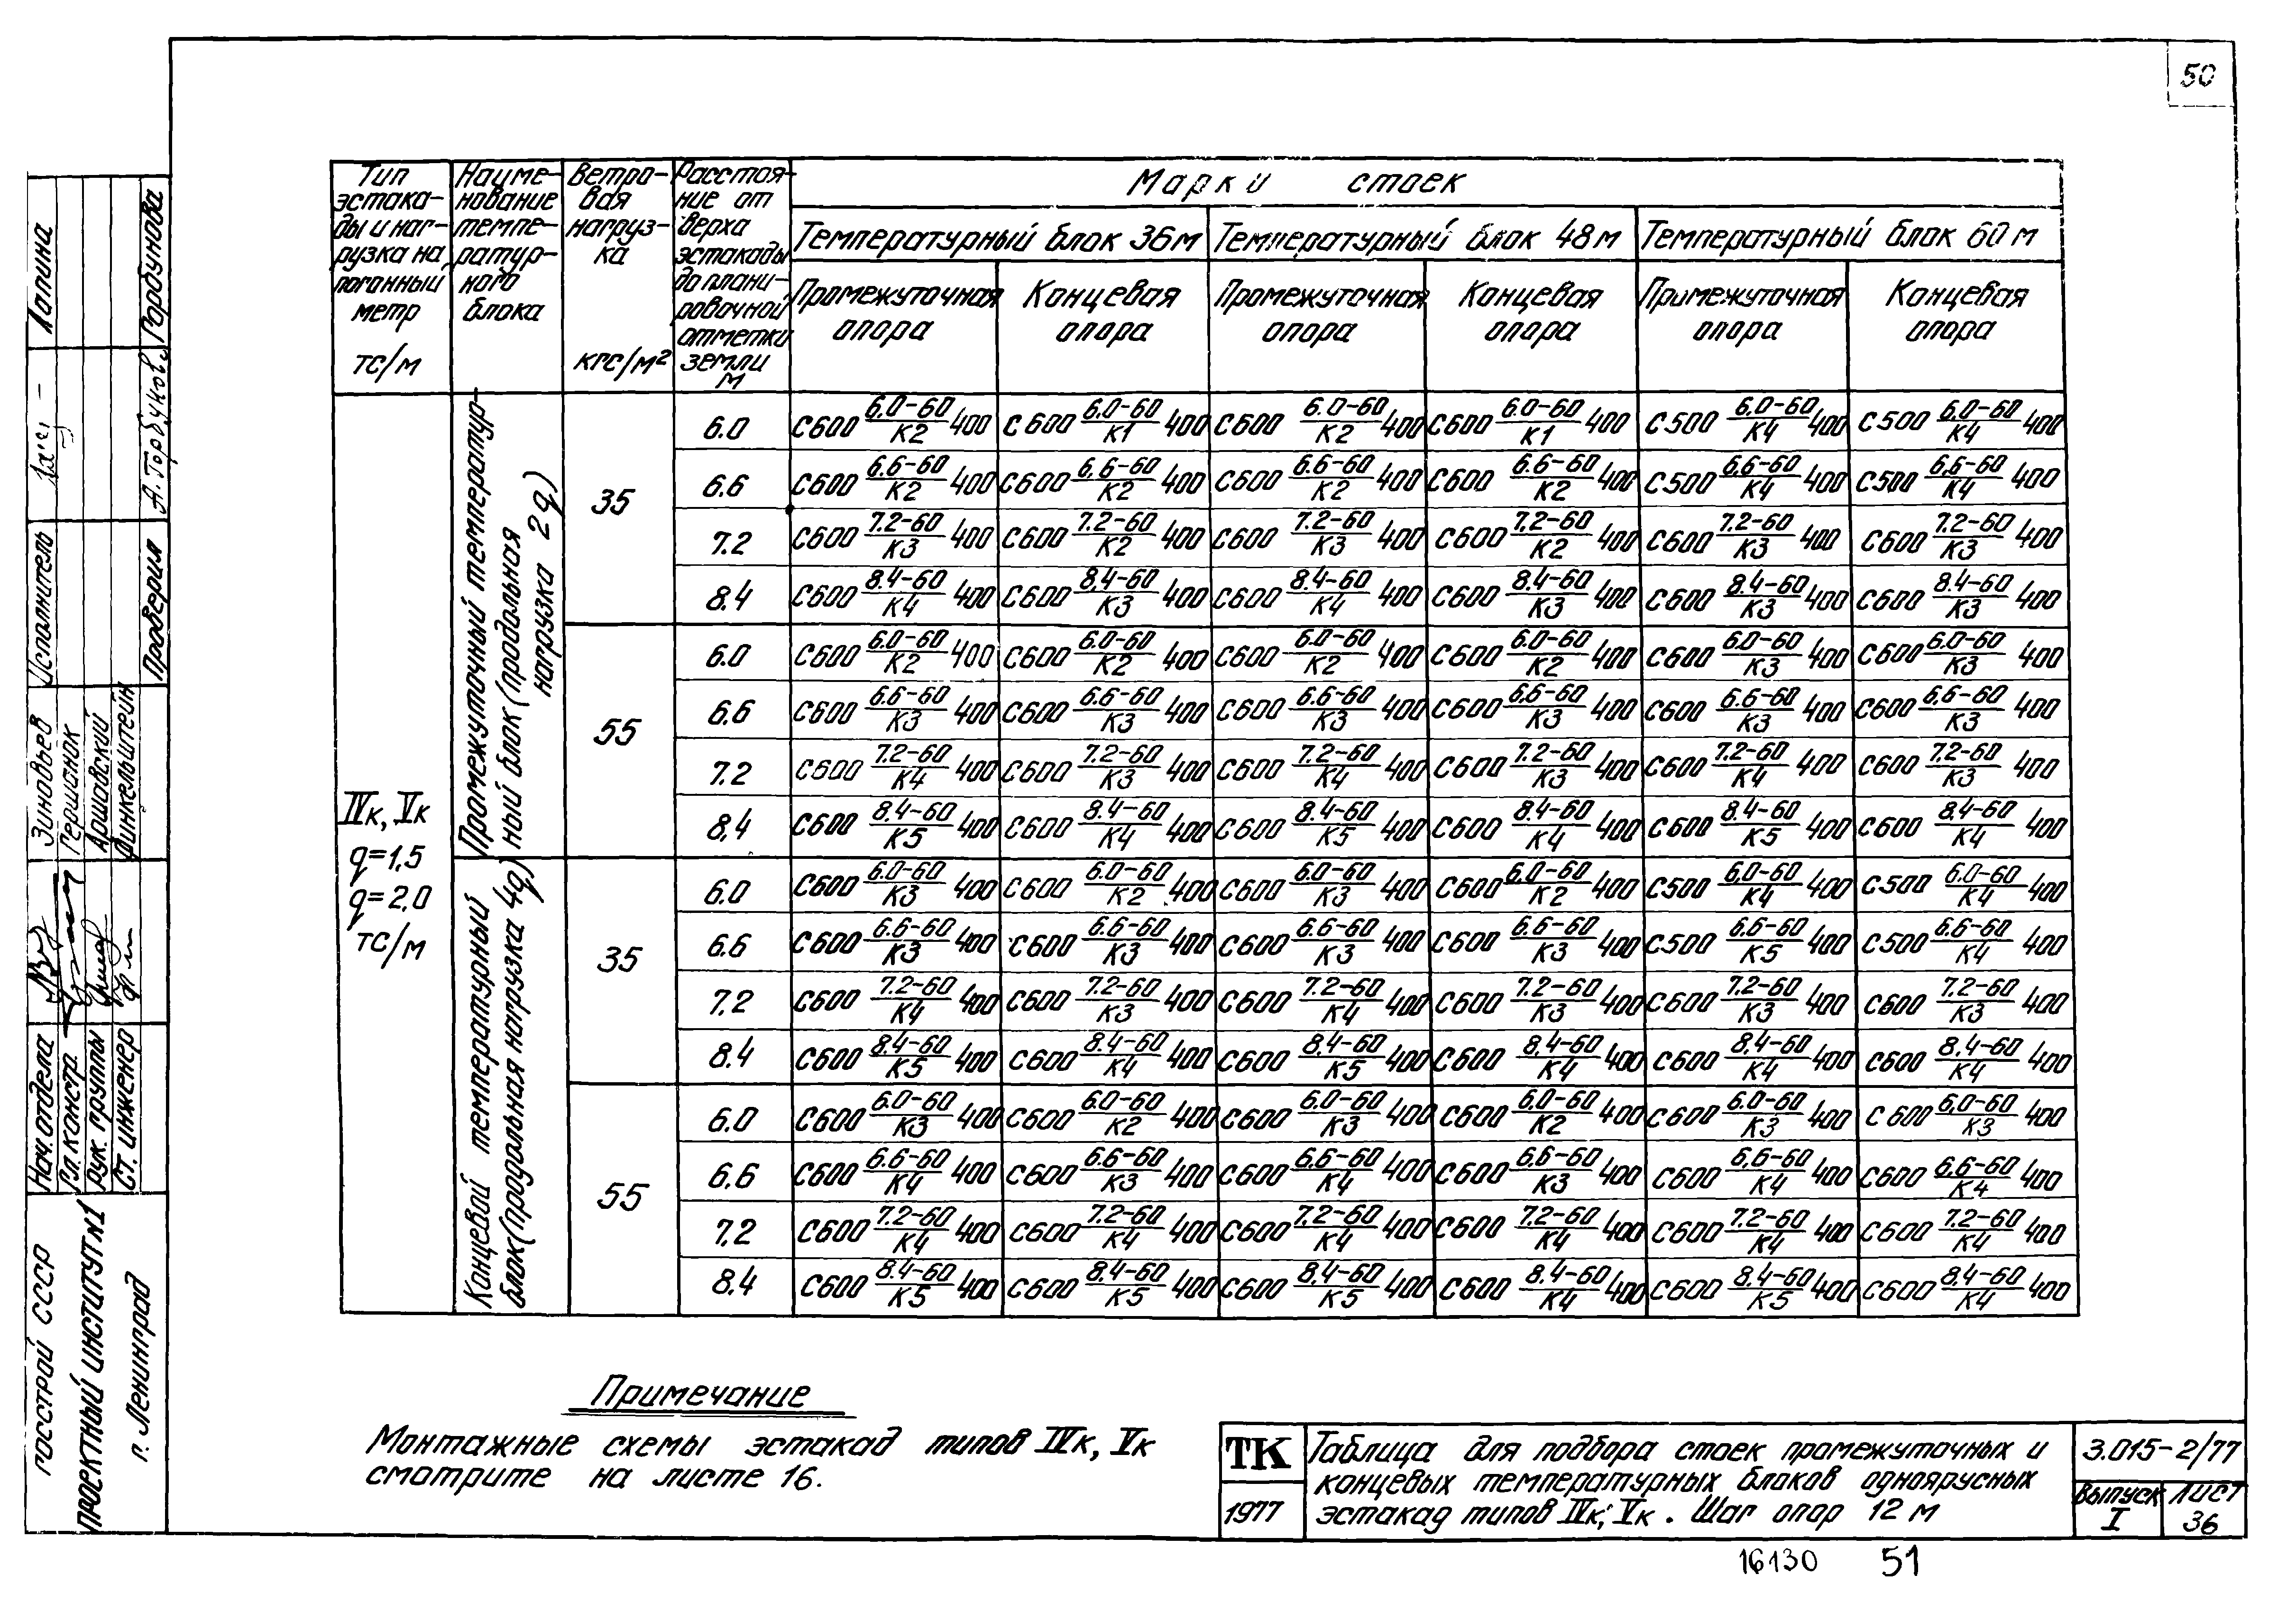 50
Тип эстака-ды и наг-рузка на погонный метр тс/м
Наиме-нование темпе-ратур-ного блока
Ветро-вая нагруз-ка кгс/м²
Расстоя-ние от верха эстакады до плани-ровочной отметки земли м
Марки стоек
Температурный блок 36м Температурный блок 48м Температурный блок 60м
Промежуточная опора Концевая опора Промежуточная опора Концевая опора Промежуточная опора Концевая опора
IVк, Vк
q=1,5
q=2,0
тс/м
Промежуточный температур-ный блок (продольная нагрузка 2q)
35
6.0 С600 6.0-60/К2 400 С600 6.0-60/К1 400 С600 6.0-60/К2 400 С600 6.0-60/К1 400 С500 6.0-60/К4 400 С500 6.0-60/К4 400
6.6 С600 6.6-60/К2 400 С600 6.6-60/К2 400 С600 6.6-60/К2 400 С600 6.6-60/К2 400 С500 6.6-60/К4 400 С500 6.6-60/К4 400
7.2 С600 7.2-60/К3 400 С600 7.2-60/К2 400 С600 7.2-60/К3 400 С600 7.2-60/К2 400 С600 7.2-60/К3 400 С600 7.2-60/К3 400
8.4 С600 8.4-60/К4 400 С600 8.4-60/К3 400 С600 8.4-60/К4 400 С600 8.4-60/К3 400 С600 8.4-60/К3 400 С600 8.4-60/К3 400
55
6.0 С600 6.0-60/К2 400 С600 6.0-60/К2 400 С600 6.0-60/К2 400 С600 6.0-60/К2 400 С600 6.0-60/К3 400 С600 6.0-60/К3 400
6.6 С600 6.6-60/К3 400 С600 6.6-60/К3 400 С600 6.6-60/К3 400 С600 6.6-60/К3 400 С600 6.6-60/К3 400 С600 6.6-60/К3 400
7.2 С600 7.2-60/К4 400 С600 7.2-60/К3 400 С600 7.2-60/К4 400 С600 7.2-60/К3 400 С600 7.2-60/К4 400 С600 7.2-60/К3 400
8,4 С600 8.4-60/К5 400 С600 8.4-60/К4 400 С600 8.4-60/К5 400 С600 8.4-60/К4 400 С600 8.4-60/К5 400 С600 8.4-60/К4 400
Концевой температурный блок (продольная нагрузка 4q)
35
6.0 С600 6.0-60/К3 400 С600 6.0-60/К2 400 С600 6.0-60/К3 400 С600 6.0-60/К2 400 С500 6.0-60/К4 400 С500 6.0-60/К4 400
6.6 С600 6.6-60/К3 400 С600 6.6-60/К3 400 С600 6.6-60/К3 400 С600 6.6-60/К3 400 С500 6.6-60/К5 400 С500 6.6-60/К4 400
7,2 С600 7.2-60/К4 400 С600 7.2-60/К3 400 С600 7.2-60/К4 400 С600 7.2-60/К3 400 С600 7.2-60/К3 400 С600 7.2-60/К3 400
8.4 С600 8.4-60/К5 400 С600 8.4-60/К4 400 С600 8.4-60/К5 400 С600 8.4-60/К4 400 С600 8.4-60/К4 400 С600 8.4-60/К4 400
55
6.0 С600 6.0-60/К3 400 С600 6.0-60/К2 400 С600 6.0-60/К3 400 С600 6.0-60/К2 400 С600 6.0-60/К3 400 С600 6.0-60/К3 400
6.6 С600 6.6-60/К4 400 С600 6.6-60/К3 400 С600 6.6-60/К4 400 С600 6.6-60/К3 400 С600 6.6-60/К4 400 С600 6.6-60/К4 400
7.2 С600 7.2-60/К4 400 С600 7.2-60/К4 400 С600 7.2-60/К4 400 С600 7.2-60/К4 400 С600 7.2-60/К4 400 С600 7.2-60/К4 400
8.4 С600 8.4-60/К5 400 С600 8.4-60/К5 400 С600 8.4-60/К5 400 С600 8.4-60/К4 400 С600 8.4-60/К5 400 С600 8.4-60/К4 400
Примечание
Монтажные схемы эстакад типов IVк, Vк
смотрите на листе 16.
ТК
1977
Таблица для подбора стоек промежуточных и
концевых температурных блоков одноярусных
эстакад типов IVк, Vк. Шаг опор 12 м
3.015-2/77
Выпуск I
Лист 36
16130 51
Госстрой СССР
Проектный институт №1
п. Ленинград
Нач. отдела Зиновьев
Гл. констр. Гершанок
Рук. группы Аршавский
Ст. инженер Финкельштейн
Исполнитель Лапина
Проверил А. Горбунова Горбунова